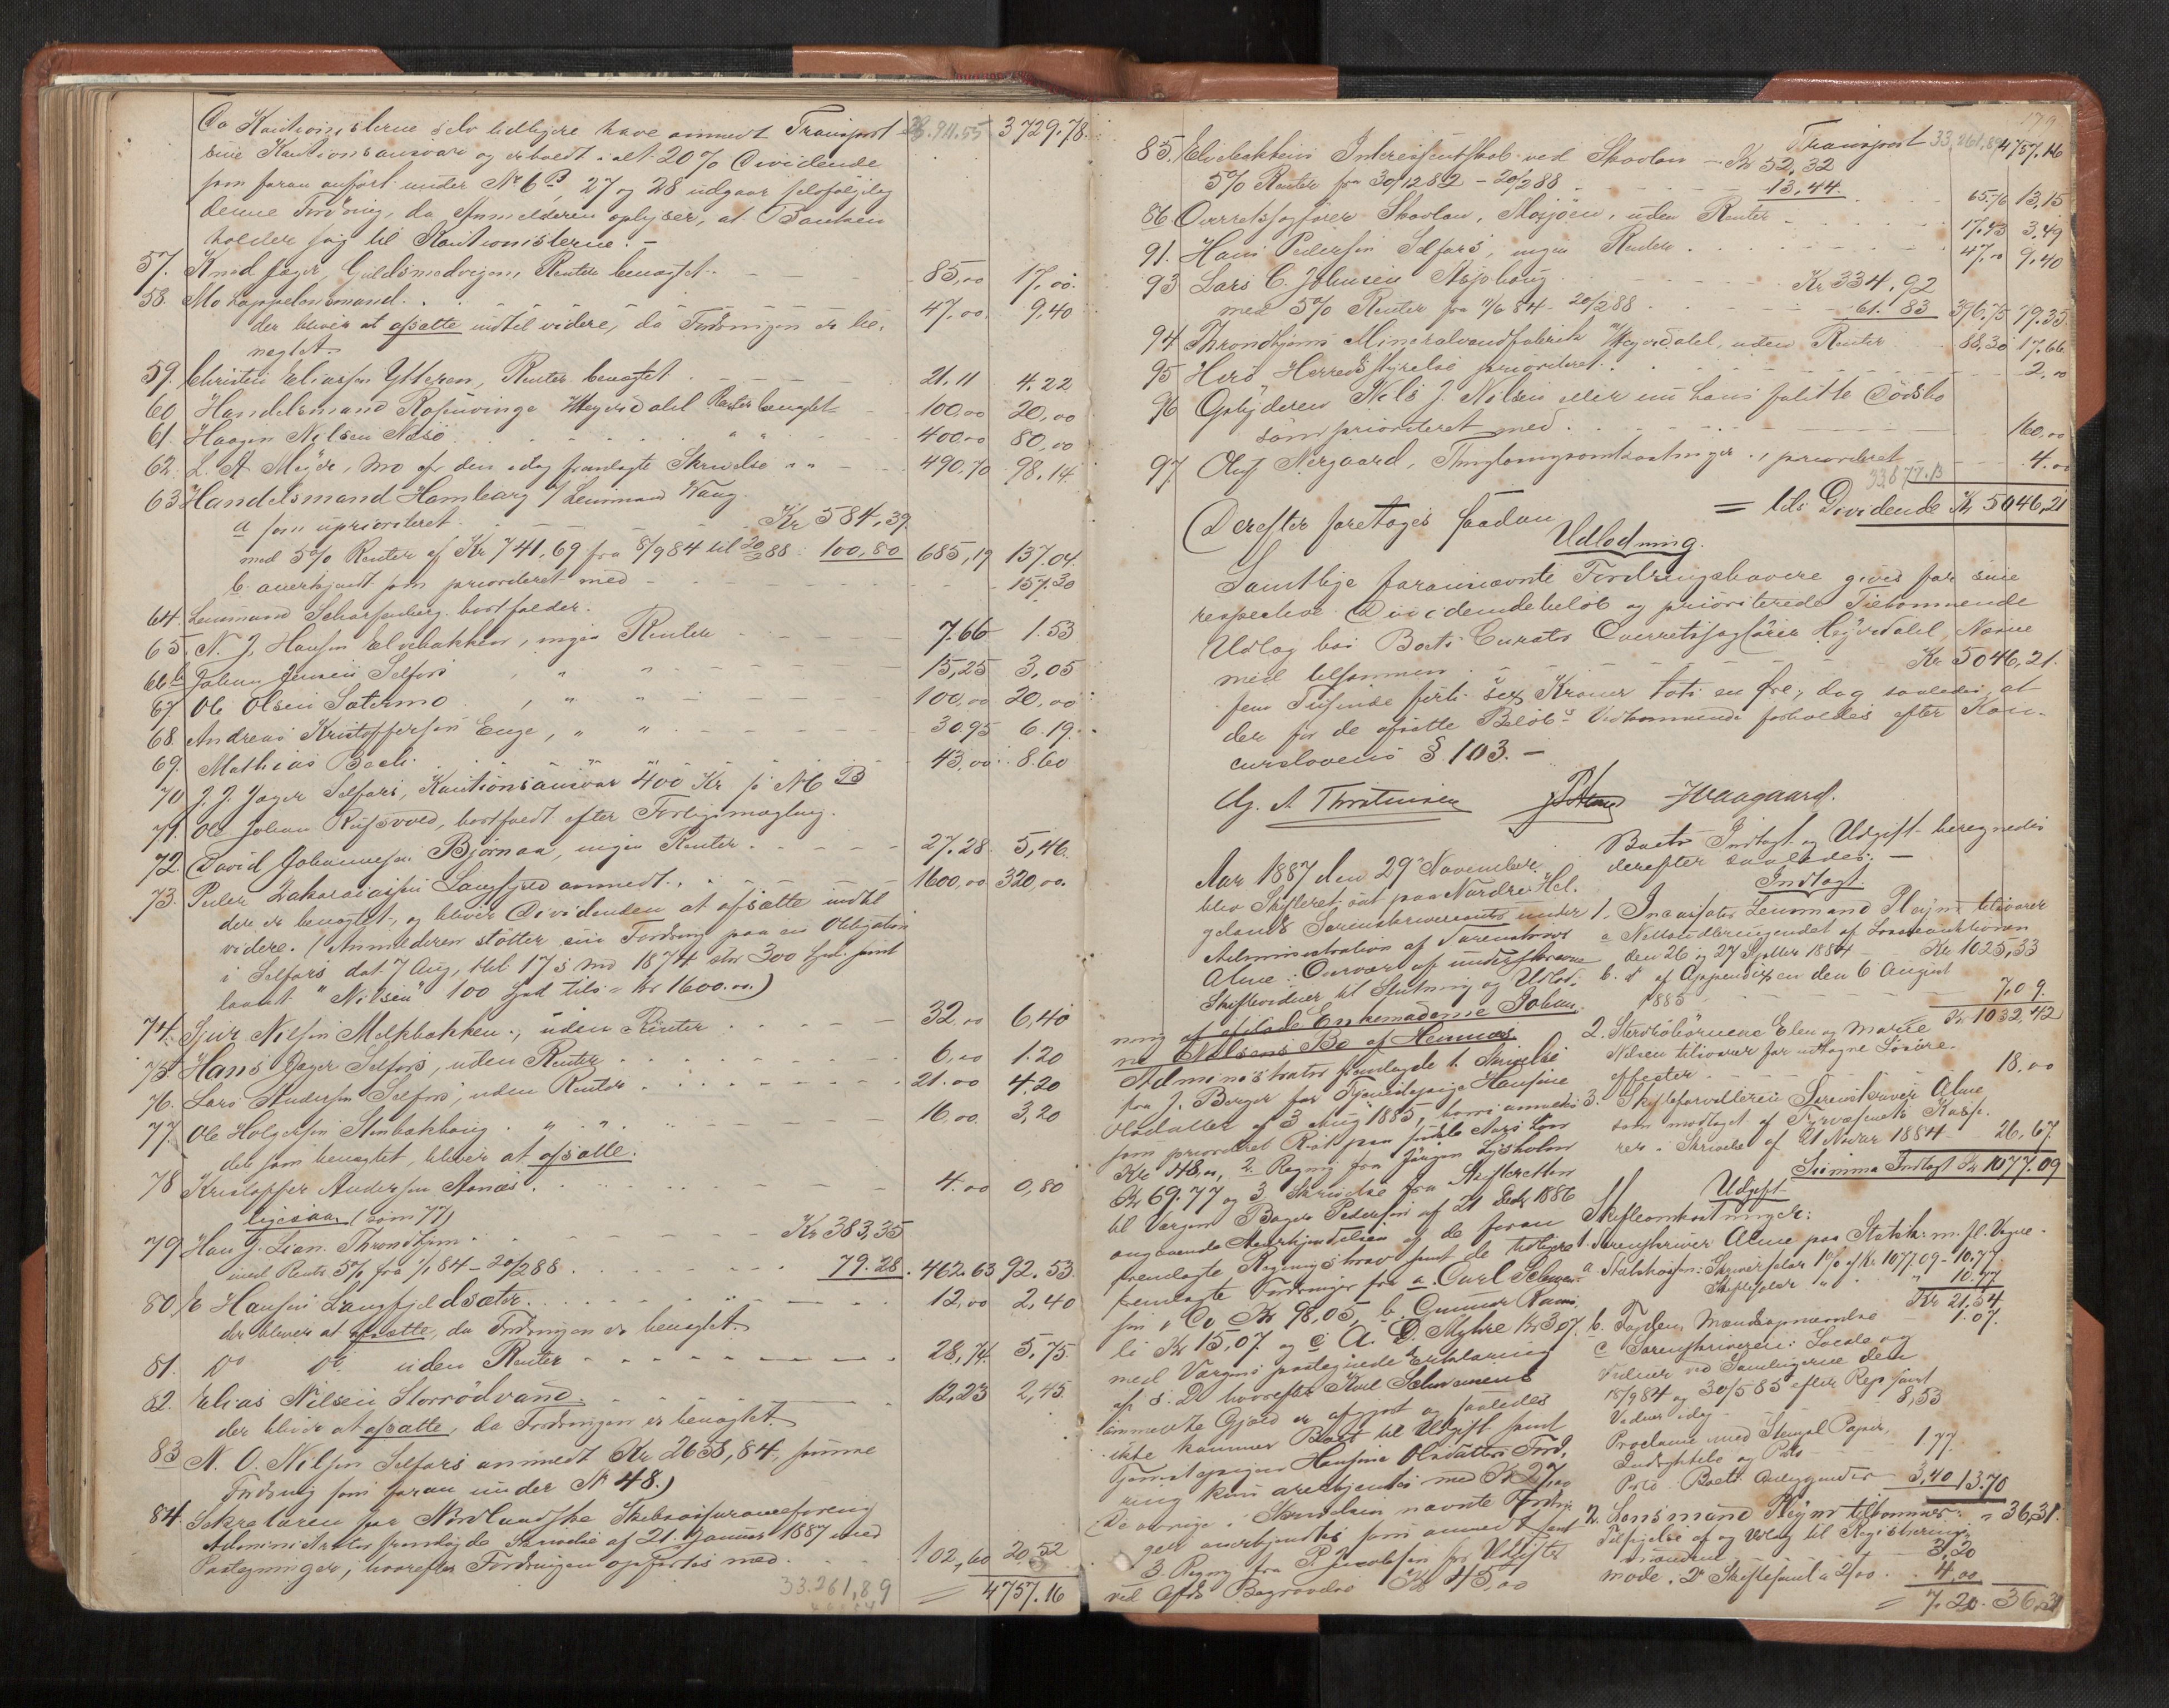 Da Kautionisterne selv tidligere have anmeldt Transport 28.911.55 3729,78.
sine Kautionsansvar og erholdt i alt 20% Dividende
som foran anført under No 6 B, 27 og 28 udgaar selvfølgelig
denne Fordring, da Anmelderen oplyser, at Banken
holder sig til Kautionisterne. —
57. Knud Jæger, Guldsmedvigen, Renter benægtet. 85,00 17,00.
58. Mo Lappelensmand. 47,00. 9,40
der bliver at afsætte indtil videre, da Fordringen er be-
nægtet.
59. Christen Eliassen Ytteren, Renter benægtet 21,11 4.22
60 Handelsmand Rosenvinge Renter benægtet 100,00 20,00
61. Haagen Nilsen Næsø 400,00 80,00
62. L. A. Meyer, Mo efter den idag fremlagte Skrivelse 490,70 98,14.
63 Handelsmand Hamburg v/ Lensmand Waag
a som uprioriteret Kr 584,39
med 5% Renter af Kr 741,69 fra 8/9 84 til 20/2 88 100,80 685,19 137.04.
b. anerkjendt som prioriteret med 157.30
64. Lensmand Scharffenberg bortfalder.
65. N. J. Hansen Elvebakken, ingen Renter 7.66 1.53
66b Johan Jensen Selfors " " 15,25 3,05
67 Ole Olsen Sætermo " " 100,00 20,00
68. Andreas Kristoffersen Enge, " " 30.95 6.19.
69. Mathias Bech " " 43,00 8.60
70 J. J. Jæger Selfors, Kautionsansvar 400 Kr jfr No 6 B
71. Ole Johan Rufsvold, bortfaldt efter Forligsmægling.
72. David Johannesen Bjørnaa, ingen Renter 27.28. 5,46.
73. Peder Zakariassen Langfjeld anmeldt 1600,00 320,00.
der er benægtet, og bliver Dividenden at afsætte indtil
videre. (Anmelderen støtter sin Fordring paa en Obligation
i Selfors dat. 7 Aug, thl 17 s md 1874 stor 300 Spd. samt
laant "Nilsen" 100 Spd tils = Kr 1600.00)
74. Sjur Nilsen Melkbakken, uden Renter 32,00 6,40
75 Hans Jæger Selfors, uden Renter 6,00 1.20
76. Lars Andersen Selfors, uden Renter 21.00 4,20
77. Ole Holgersen Stenbakhaug " " 16,00. 3,20
der som benægtet, bliver at afsætte.
78 Kristoffer Andersen Aanæs 4.00 0,80
ligesaa (som 77)
79. Hans J. Lian. Throndhjem Kr 383,35
med Rente 5% fra 1/1 84 — 20/2 88 79.28. 462.63 92.53.
80 E Hansen Langfjeldsæter 12,00 2,40
der bliver at afsætte, da Fordringen er benægtet
81. Do Do uden Renter 28,74. 5,75.
82. Elias Nilsen Storrødvand 12,23 2,45.
der bliver at afsætte, da Fordringen er benægtet.
83 N. O. Nilsen Selfors anmeldt Kr 2658,84, samme
Fordring som foran under No 48.)
84. Sekretæren for Nordlandske Skibsassuranceforening
Administrator fremlagde Skrivelse af 21. Januar 1887 med
Paategninger, hvorefter Fordringen opføres med 102,60 20,52
33.261,89 = 4757.16
179
Transport 33,261,89 4757,16
85. Elvebakkens Interessentskab ved Skavlan — Kr 52,32
5% Renter fra 30/12 82 — 20/2 88 13,44. 65.76 13,15
86 Overretssagfører Skavlan, Mosjøen, uden Renter 17,43 3,49
91. Hans Pedersen Selfors, ingen Renter 47,00 9,40
93 Lars C. Johnsen Kr 334,92
med 5% Renter fra 11/6 84 — 20/2 88 61.83 396.75 79.35
94 Throndhjems Mineralvandfabrik m/ Heyerdahl, uden Renter 88,30 17,66
95 Herø Herredsstyrelse prioriteret 2,00
96 Opsyderen Nils J. Nilsen eller nu hans falitte Dødsbo
som prioriteret med 160,00
97. Oluf Nergaard, Thinglæsningsomkostninger, prioriteret 4.00
33,877.13
= tils Dividende Kr 5046,21
Derefter foretoges saadan
Udlodning.
Samtlige forannævnte Fordringshavere gives for sine
respective Dividendebeløb og prioriterede Tilkommende
Udlag hos Boets Curator Overretssagfører Heyerdahl, Næsne
med tilsammen Kr 5046,21.
fem Tusinde førti sex Kroner toti en Øre, dog saaledes at
der for de afsatte Beløbs Vedkommende forholdes efter Kon-
curslovens § 103. —
G. A. Thortensen JWaagaard.
Aar 1887 den 29 November
blev Skifteret sat paa Nordre Hel-
gelands Sorenskriverembede under
Administration af Sorenskriver
Alme i Overvær af underskrevne
Skiftevidner til Slutning og Udlod-
ning af afdøde Enkemadame Johan-
ne Nilsens Bo af Hemnæs.
Administrator fremlagde 1. Skrivelse
fra J. Berger for Tjenestepige Hansine
Olsdatter af 3 Aug 1885, hvori anmeldes
som prioriteret Krav paa sidste Aars Løn
Kr 48,00, 2. Regning fra Jørgen Lysholm
Kr 69.77 og 3. Skrivelse fra Skifteretten
til Værgen Bager Pedersen af 21 Decbr 1886
angaaende Anerkjendelsen af de foran
fremlagte Regningskrav samt de tidligere
fremlagte Fordringer fra a. Carl Schwen-
sen & Co Kr 98,05, b. Gunnar Rams-
li Kr 15,07 og c. A. D. Myhre Kr 3,07
med Værgens paategnede Erklæring
af s. D. hvorefter Karl Schwensens
anmeldte Gjæld er afgjort og saaledes
ikke kommer Boet til Udgift samt
Tjenestepigen Hansine Olsdatters Ford-
ring kun anerkjendes med Kr 27,00
De øvrige i Skrivelsen nævnte Fordrin-
ger anerkjendtes som anmeldt samt
3. Regning fra P. Jacobsen for Udgifter
ved Afdødes Begravelse Kr 45,00
Boets Indtægt og Udgift beregnedes
derefter saaledes. —
Indtægt.
1. Incassator Lensmand Pleym tilsvarer
a Nettoudbringendet af Løsøreauktionen
den 26 og 27 Septbr 1884 Kr 1025,33
b. do af Appendixen den 6 August
1885 7,09.
Kr 1032,42
2. Stervbobørnene Elen og Marie
Nilsen tilsvarer for udtagne Løsøre-
effecter 18,00
3. Skifteforvalteren Sorenskriver Alme
som modtaget af Fyrvæsenets Kasse-
rer i Skrivelse af 21 Novbr 1884 26,67.
Summa Indtægt Kr 1077.09
Udgift
Skifteomkostninger:
1. Sorenskriver Alme paa Statsk. m. fl. Vegne
a Statskassen: Skriversalær 1% af Kr 1077.09 - 10.77
Skiftesalær " " " 10.77
Kr 21,54
b. Fogden, Mændsopnævnelse 1.07.
c Sorenskriveren: Locale og
Vidner ved Samlingerne den
18/9 84 og 30/5 85 efter Regn. samt
Vidner idag 8,53
Proclama med Stempel Papir,
Indrykkelse og Porto 1 77
Porto Boets Anliggender 3,40 13.70
36,31.
2. Lensmand Pleym tilkommer:
Tilsigelse af og Udlæg til Registrerings-
mændene 3,20
møde i 2 Skiftesaml a 2,00 4,00
= 7.20. 36,31